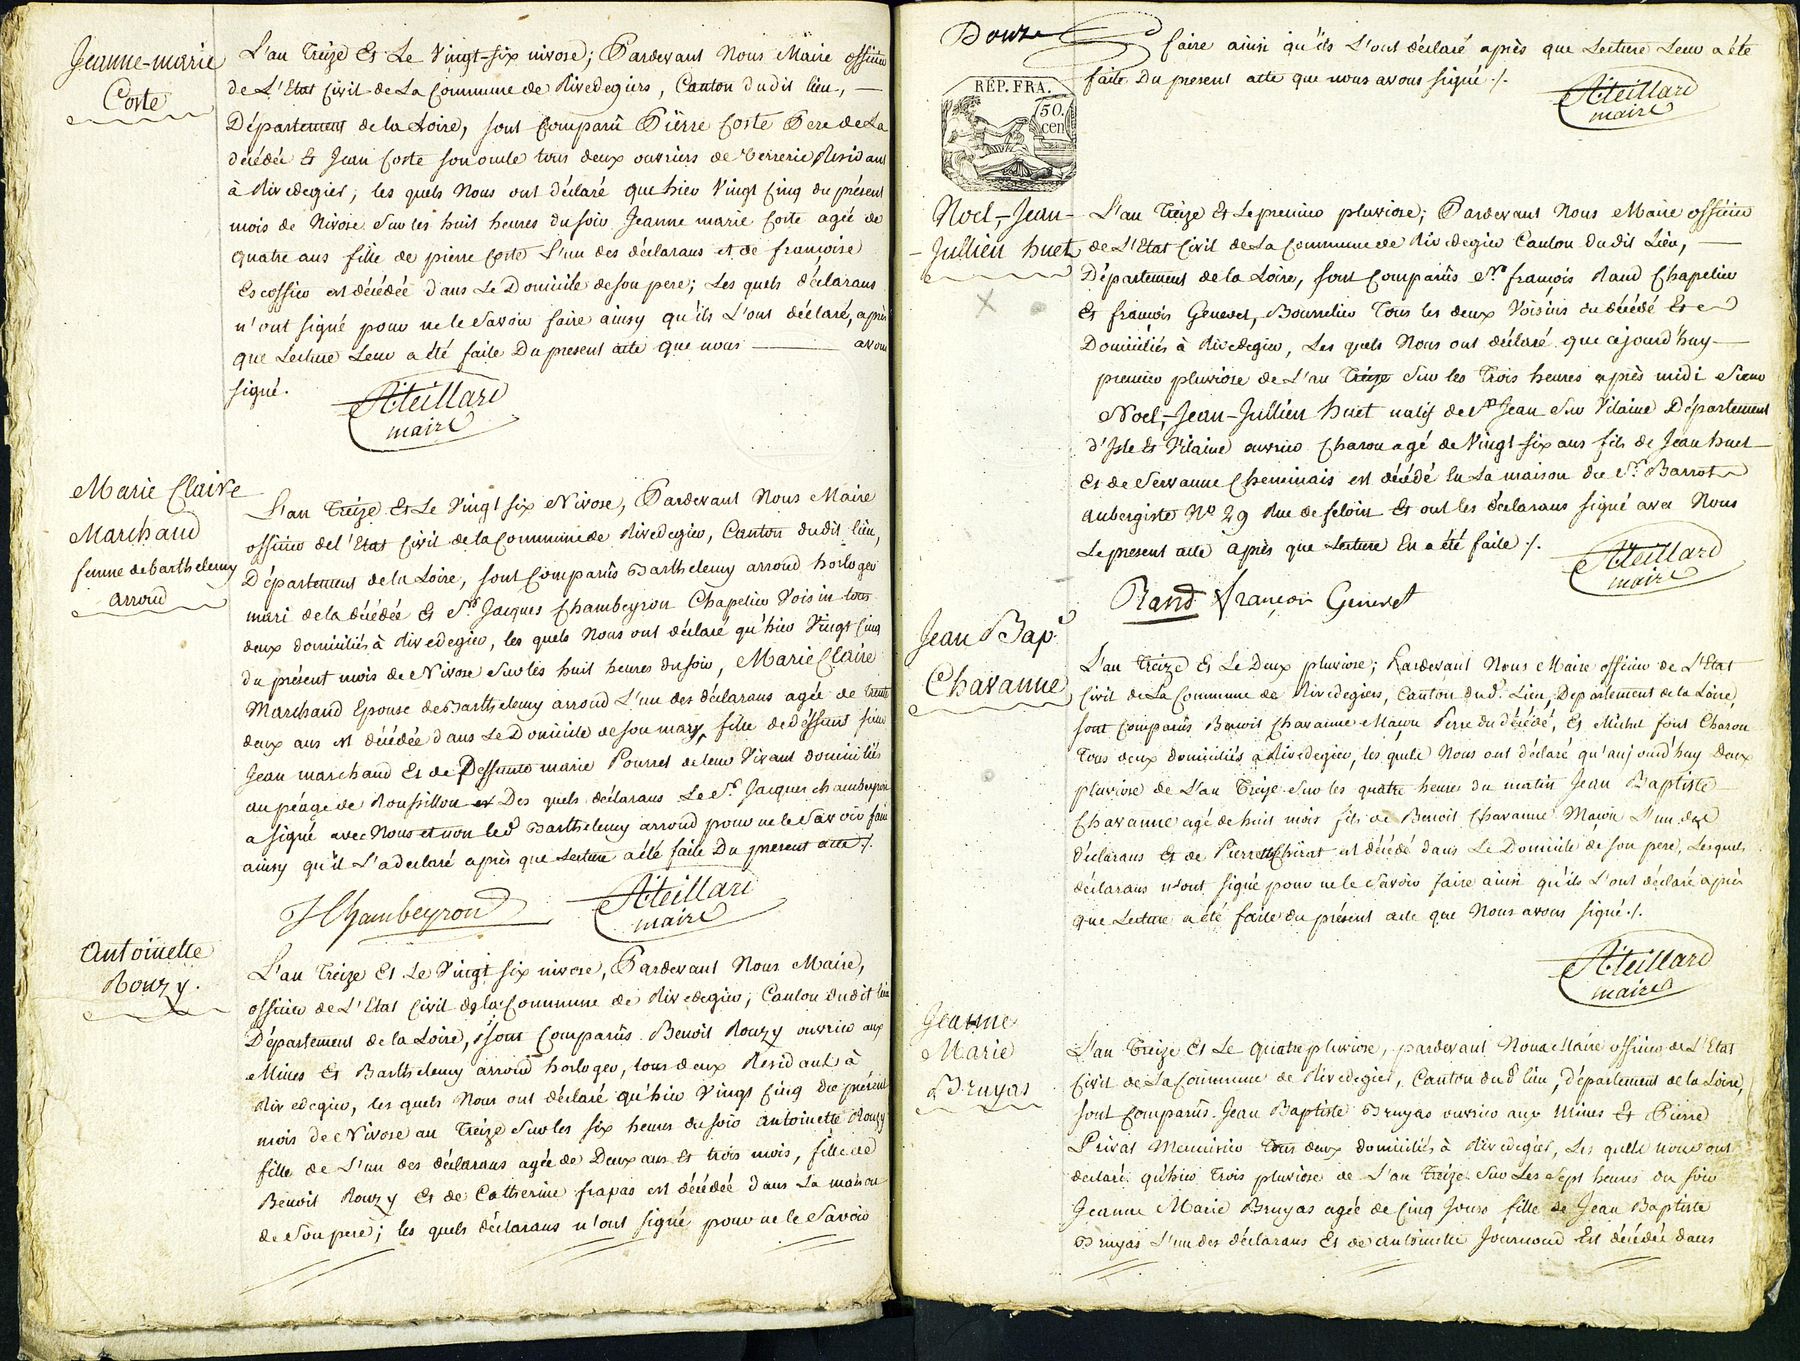 Jeanne-marie
Coste
L'an Treize Et Le Vingt-six nivose; Pardevant Nous Maire officier
de L'Etat Civil de La Commune de Rivedegiers, Canton dudit lieu,
Département de la Loire, sont Comparû Pierre Coste Pere de La
décédée Et Jean Coste son oncle tous deux ouvriers de verrerie Residant
à Rivedegier, les quels Nous ont déclaré que hier Vingt Cinq du présent
mois de Nivose Sur les huit heures du soir Jeanne marie Coste agée de
quatre ans fille de pierre Coste L'un des déclarans et de françoise
Escoffier est décédée dans Le Domicile de son pere; Les quels déclarans
n'ont signé pour ne le Savoir faire ainsy qu'ils L'ont déclaré, après
que Lecture Leur a été faite Du present acte que nous avons
signé.
ATeillard
maire
Marie Claire
Marchand
femme de barthelemy
arroud
L'an Treize Et Le Vingt six Nivose, Pardevant Nous Maire
officier de l'Etat Civil de la Commune de Rivedegier, Canton dudit lieu,
Département de la Loire, sont Comparûs Barthelemy arroud horloger
mari de la décédée Et Sr Jacques Chambeyron Chapelier Voisin tous
deux domiciliés à Rivedegier, les quels Nous ont déclaré qu'hier Vingt Cinq
du présent mois de Nivose Sur les huit heures du soir, Marie Claire
Marchand Epouse de Barthelemy arroud L'un des déclarans agée de trente
deux ans est décédée dans Le Domicile de son mary, fille de deffunt sieur
Jean marchand Et de Deffunte marie Pourret de leur Vivant domiciliés
au péage de Roussillon Des quels déclarans Le Sr Jacques chambeyron
a signé avec Nous et non led Barthelemy arroud pour ne le Savoir faire
ainsy qu'il L'a declaré après que Lecture a été faite Du present acte ./.
JChambeyron
ATeillard
maire
Antoinette
Rouzy.
L'an Treize Et Le Vingt six nivose, Pardevant Nous Maire,
officier de L'Etat Civil de la Commune de Rivedegier, Canton dudit lieu
Département de la Loire, sont Comparûs Benoit Rouzy ouvrier aux
Mines Et Barthelemy arroud horloger, tous deux Residant à
Rivedegier, les quels Nous ont déclaré qu'hier Vingt Cinq du présent
mois de Nivose an Treize Sur les six heures du soir Antoinette Rouzy
fille de L'un des déclarans agée de Deux ans Et trois mois, fille de
Benoit Rouzy Et de Catherine frapas est décédée dans La maison
de Son pere; les quels déclarans n'ont signé pour ne le Savoir
Douze
faire ainsi qu'ils L'ont déclaré après que Lecture Leur a été
faite Du present acte que nous avons signé ./.
ATeillard
maire
RÉP. FRA.
50.
cen
Noel-Jean-
Jullien huet
L'an Treize Et Le premier pluviose; Pardevant Nous Maire officier
de L'Etat Civil de La Commune de Rivedegier Canton dudit Lieu,
Département de la Loire, sont Comparûs Sr françois Rand Chapelier
Et françois Genevet, Bourrelier Tous les deux Voisins du décédé Et
Domiciliés à Rivedegier, Les quels Nous ont déclaré que cejourd'huy
premier pluviose de L'an Treize Sur les Trois heures après midi Sieur
Noel-Jean-Jullien huet natif de St Jean Sur Vilaine Département
d'Isle Et Vilaine ouvrier Charon agé de Vingt six ans fils de Jean huet
Et de Servanne Cheminais est décédé En La maison du Sr Barrot
aubergiste No 29 Rue de feloin Et ont les déclarans signé avec Nous
Le present acte après que Lecture En a été faite ./.
ATeillard
maire
Rand françois Genevet
Jean Bapt
Chavanne
L'an Treize Et Le Deux pluviose; Pardevant Nous Maire officier de L'Etat
Civil de La Commune de Rivedegiers, Canton dud. Lieu, Departement de la Loire,
sont comparûs Benoit Chavanne Maçon Perre du décédé, Et Michel font Charon
Tous deux domiciliés à Rivedegier, les quels Nous ont déclaré qu'aujourd'huy Deux
pluviose de L'an Treize Sur les quatre heures du matin Jean Baptiste
Chavanne agé de huit mois fils de Benoit Chavanne Maçon L'un des
déclarans Et de Pierrette Chirat est décédé dans Le Domicile de son pere, Lesquels
déclarans n'ont signé pour ne le Savoir faire ainsi qu'ils L'ont déclaré après
que Lecture a été faite du présent acte que Nous avons signé ./.
ATeillard
maire
Jeanne
Marie
Bruyas
L'an Treize Et Le quatre pluviose, pardevant Nous Maire officier de L'Etat
Civil de La Commune de Rivedegier, Canton dud. lieu, département de la Loire,
sont Comparûs Jean Baptiste Bruyas ouvrier aux Mines Et Pierre
Privat Menuisier Tous deux domiciliés à Rivedegier, Les quels nous ont
déclaré qu'hier Trois pluviose de L'an Treize Sur Les Sept heures du soir
Jeanne Marie Bruyas agée de Cinq Jours fille de Jean Baptiste
Bruyas L'un des déclarans Et de Antoinette Journoud Est décédée dans